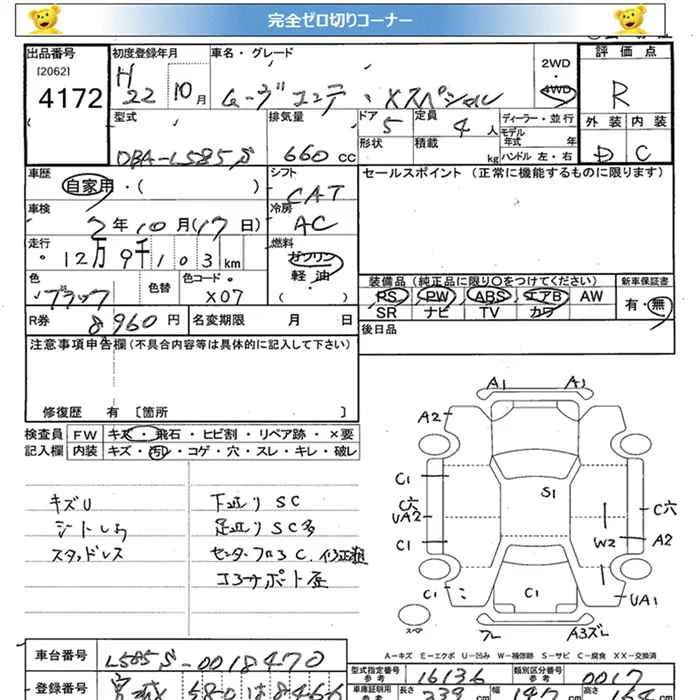 完全ゼロ切りコーナー
出品番号 初度登録年月 車名・グレード 2WD 評価点
[2062] H 4WD
4172 22 10月 ムーヴコンテ・Xスペシャル R
型式 排気量 ドア 定員 ディーラー・並行 外装 内装
5 4人 モデル年式 年
DBA-L585S 660cc 形状 積載 kg ハンドル 左・右 D C
車歴 シフト セールスポイント (正常に機能するものに限ります)
自家用・( ) CAT
車検 冷房
2年10月(17日) AC
走行 燃料
12万9千103km ガソリン
軽油
色 色替 色コード ( ) 装備品(純正品に限り○をつけてください) 新車保証書
ブラック X07 PS PW ABS エアB AW 有・無
R券 8960円 名変期限 月 日 SR ナビ TV カワ
後日品
注意事項申告欄(不具合内容等は具体的に記入して下さい)
修復歴 有 [箇所 ]
検査員 FW キズ・飛石・ヒビ割・リペア跡・×要
記入欄 内装 キズ・汚レ・コゲ・穴・スレ・キレ・破レ
キズU 下廻りSC
シートしわ 足廻りSC多
スタッドレス センターフロアC、
コアサポート
A1 A1
A2
C1 S1 C穴 C穴
UA2 W2 A2
C1
C1 C1 UA1
スペア アレ A3ズレ
A-キズ E-エクボ U-凹み W-補修跡 S-サビ C-腐食 XX-交換済
車台番号 L585S-0018470 型式指定番号 参考 16136 類別区分番号 参考 0017
登録番号 宮城 580 車庫証明用 参考 長さ 339 cm 147 cm